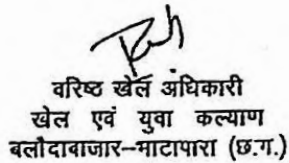 वरिष्ठ खेल अधिकारी
खेल एवं युवा कल्याण
बलौदाबाजार–भाटापारा (छ.ग.)